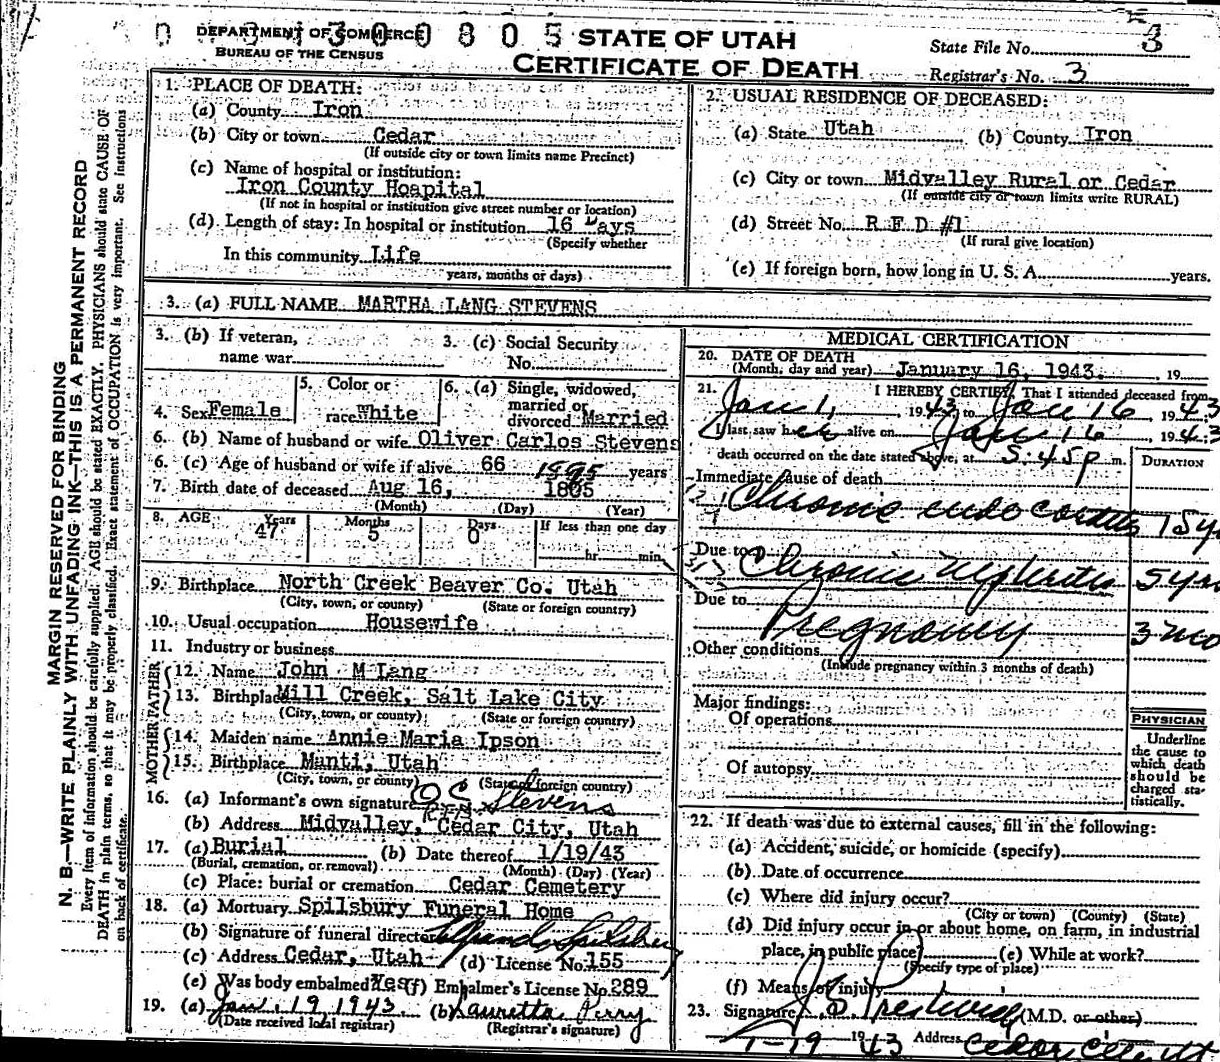 0 300805
DEPARTMENT OF COMMERCE
BUREAU OF THE CENSUS
STATE OF UTAH
CERTIFICATE OF DEATH
State File No. 3
Registrar's No. 3
MARGIN RESERVED FOR BINDING
N. B.—WRITE PLAINLY WITH UNFADING INK—THIS IS A PERMANENT RECORD
Every item of information should be carefully supplied. AGE should be stated EXACTLY. PHYSICIANS should state CAUSE OF
DEATH in plain terms, so that it may be properly classified. Exact statement of OCCUPATION is very important. See instructions
on back of certificate.
1. PLACE OF DEATH:
(a) County Iron
(b) City or town Cedar
(If outside city or town limits name Precinct)
(c) Name of hospital or institution:
Iron County Hospital
(If not in hospital or institution give street number or location)
(d) Length of stay: In hospital or institution 16 Days
(Specify whether
In this community Life
years, months or days)
2. USUAL RESIDENCE OF DECEASED:
(a) State Utah (b) County Iron
(c) City or town Midvalley Rural or Cedar
(If outside city or town limits write RURAL)
(d) Street No. R F D #1
(If rural give location)
(e) If foreign born, how long in U. S. A. years.
3. (a) FULL NAME MARTHA LANG STEVENS
3. (b) If veteran,
name war
3. (c) Social Security
No.
4. Sex Female
5. Color or
race White
6. (a) Single, widowed,
married or
divorced Married
6. (b) Name of husband or wife Oliver Carlos Stevens
6. (c) Age of husband or wife if alive 66 years
1895
7. Birth date of deceased Aug 16, 1885
(Month) (Day) (Year)
8. AGE Years Months Days If less than one day
47 5 0 hr. min.
9. Birthplace North Creek Beaver Co. Utah
(City, town, or county) (State or foreign country)
10. Usual occupation Housewife
11. Industry or business
FATHER
12. Name John M Lang
13. Birthplace Mill Creek, Salt Lake City
(City, town, or county) (State or foreign country)
MOTHER
14. Maiden name Annie Maria Ipson
15. Birthplace Manti, Utah
(City, town, or county) (State or foreign country)
16. (a) Informant's own signature O C Stevens
(b) Address Midvalley, Cedar City, Utah
17. (a) Burial (b) Date thereof 1/19/43
(Burial, cremation, or removal) (Month) (Day) (Year)
(c) Place: burial or cremation Cedar Cemetery
18. (a) Mortuary Spilsbury Funeral Home
(b) Signature of funeral director Spilsbury
(c) Address Cedar, Utah (d) License No. 155
(e) Was body embalmed Yes (f) Embalmer's License No. 289
19. (a) Jan. 19 1943 (b) Lauretta Perry
(Date received local registrar) (Registrar's signature)
MEDICAL CERTIFICATION
20. DATE OF DEATH
(Month, day and year) January 16, 1943. , 19
21. I HEREBY CERTIFY, That I attended deceased from
Jan 1, 1943, to Jan 16 1943
I last saw her alive on Jan 16 1943
death occurred on the date stated above, at 5:45 p m.
DURATION
Immediate cause of death
Chronic endocarditis 15 yrs
Due to Chronic Nephritis 5 yrs
Due to
Pregnancy 3 mo
Other conditions
(Include pregnancy within 3 months of death)
Major findings:
Of operations
Of autopsy
PHYSICIAN
Underline
the cause to
which death
should be
charged sta-
tistically.
22. If death was due to external causes, fill in the following:
(a) Accident, suicide, or homicide (specify)
(b) Date of occurrence
(c) Where did injury occur?
(City or town) (County) (State)
(d) Did injury occur in or about home, on farm, in industrial
place, in public place? (e) While at work?
(Specify type of place)
(f) Means of injury
23. Signature J. S. Prestwich (M.D. or other)
1-19 1943 Address Cedar City Ut